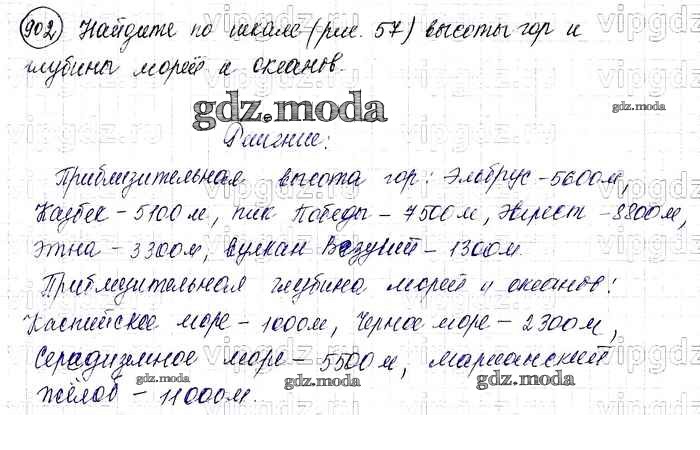 902. Найдите по шкале (рис. 57) высоты гор и
глубины морей и океанов.
gdz.moda
gdz.moda
Решение:
Приблизительная высота гор: Эльбрус - 5600м,
Казбек - 5100 м, пик Победы - 7500м, Эверест - 8800м,
Этна - 3300м, вулкан Везувий - 1300м.
Приблизительная глубина морей и океанов:
Каспийское море - 1000м, Черное море - 2300м,
Средиземное море - 5500м, марианский
gdz.moda gdz.moda gdz.moda
жёлоб - 11000м.